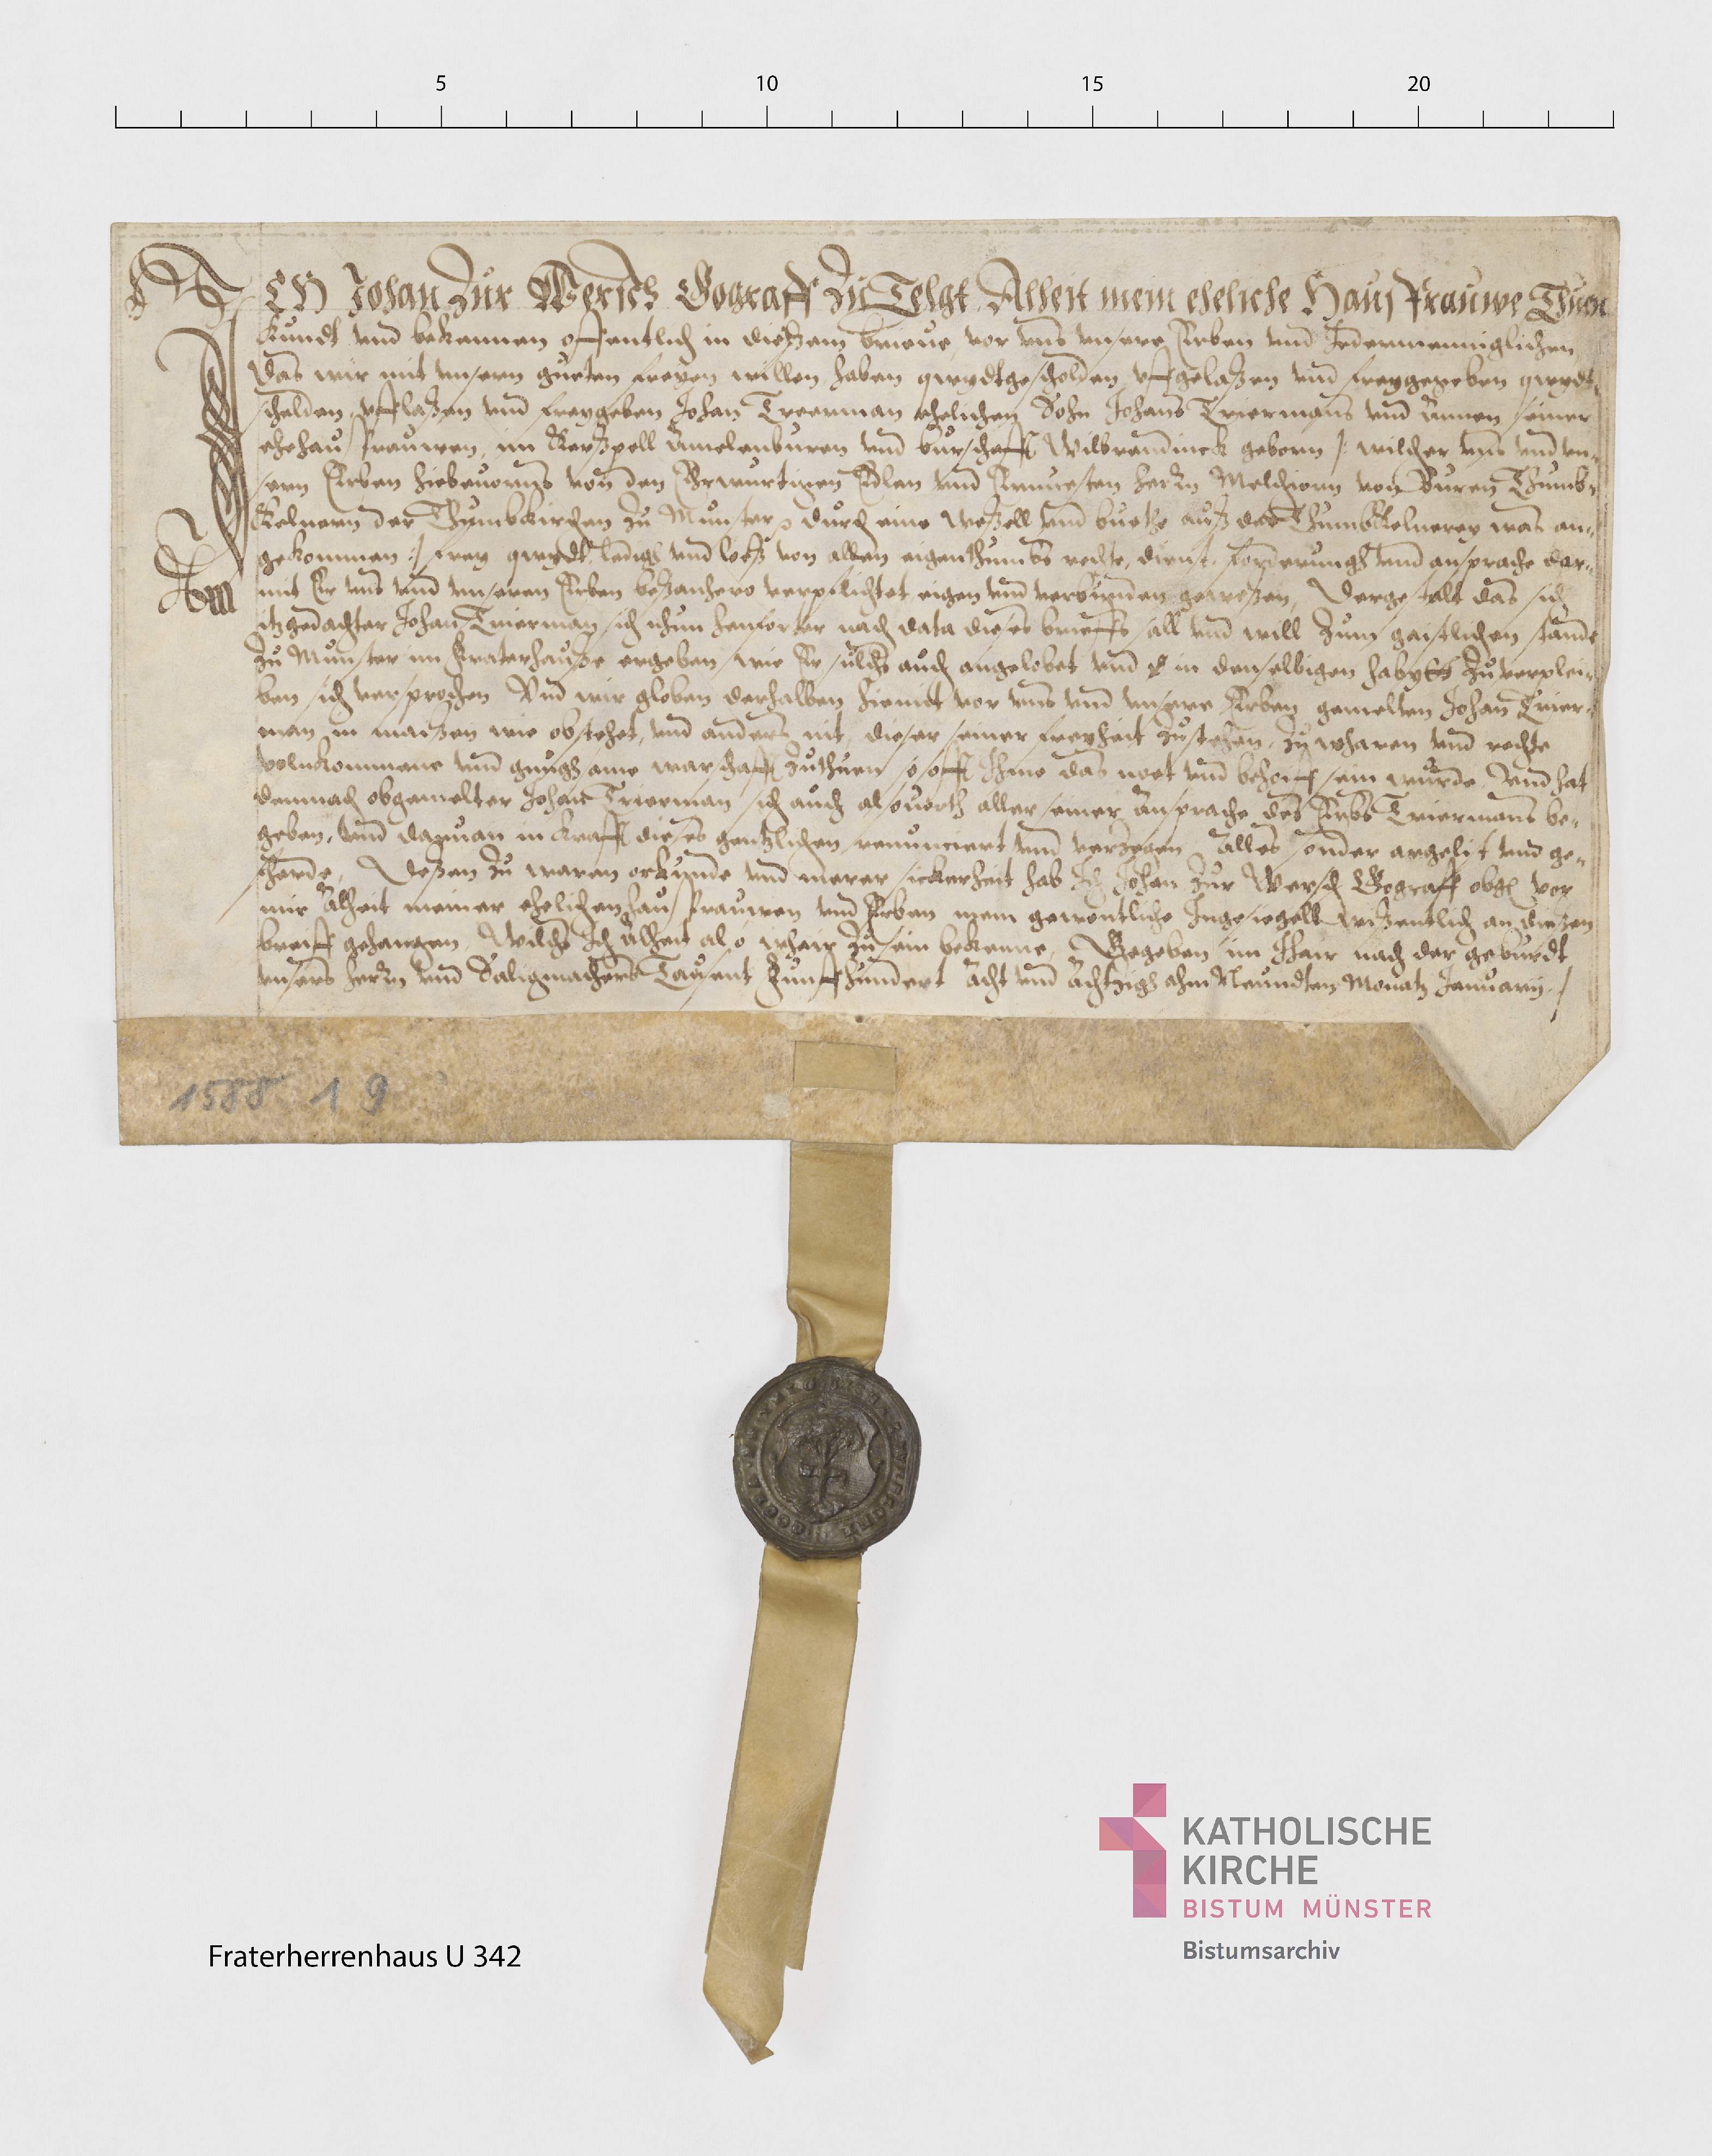 5 10 15 20
ICH Johan Zur Wersch Gograff Zu Telgt, Alheit mein eheliche Hausfrauwe Thuen
kundt vnd bekennen offentlich in dießem brieue, vor vns vnsere Erben vnd Jedermenniglichen
Das wir mit vnsern gueten freyen willen haben qwydtgescholden, vffgelaßen vnd freygegeben qwydt
schelden, vfflaßen vnd freygeben Johan Treerman ehelichen Sohn Johans Triermans vnd Annen seiner
ehehausfrauwen, im Kerspell Amelenburen vnd burschafft Wilbrandinck geborn /: wilcher vns vnd vn-
sern Erben hiebeuorns von den Erwurtigen Edlen vnd Ernuesten Herrn Melchiorn von Buren Thumb-
Kelnern der Thumbkirchen zu Munster, durch eine weßell vnd buethe auß der Thumbkelnerey was an-
gekommen :/ frey qwydt, ledigh vnd loeß von allen eigenthumbs rechte, dienst, forderungh vnd ansprache dar-
mit Er vns vnd vnseren Erben beßanhero verpflichtet eigen vnd verbunden geweßen, Dergestalt das sich
itzgedachter Johan Trierman sich nhun henforter nach data dieses brieffs sall vnd will zum gaistlichen stande
zu Munster im fraterhauße ergeben, wie Er sulchs auch angelobet vnd in denselbigen habytt zuverplei-
ben sich versprochen Vnd wir globen derhalben hiemit vor vns vnd vnsere Erben gemelten Johan Trier-
man in maißen wie obstehet, vnd anders nit, dieser seiner freyheit zustehen, zu wharen vnd rechte
volnkommene vnd gnughsame warschafft zuthuen so offt Ihme das noet vnd behoiff sein wurde Vnd hat
demnach obgemelter Johan Trierman sich auch alsouorth aller seiner Ansprache des Erbs Triermans be-
geben, vnd daruan in krafft dieses gentzlichen renunciert vnd verzegen Alles sonder argelist vnd ge-
herde, Deßen zu waren orkunde vnd merer sickerheit hab Ich Johan Zur Wersch Gograff obgl vor
mir Alheit meiner ehelichenhausfrauwen vnd Erben mein gewontliche Ingesiegell wißentlich an dießen
breiff gehangen, Wilchs Ich Alheit also whair zu sein bekenne, Gegeben im Ihair nach der geburdt
vnsers herrn vnd Saligmachers Tausent Funffhundert Acht vnd Achtzigh ahm Neundten Monatz Januarij /
1588 1 9
Fraterherrenhaus U 342
KATHOLISCHE
KIRCHE
BISTUM MÜNSTER
Bistumsarchiv